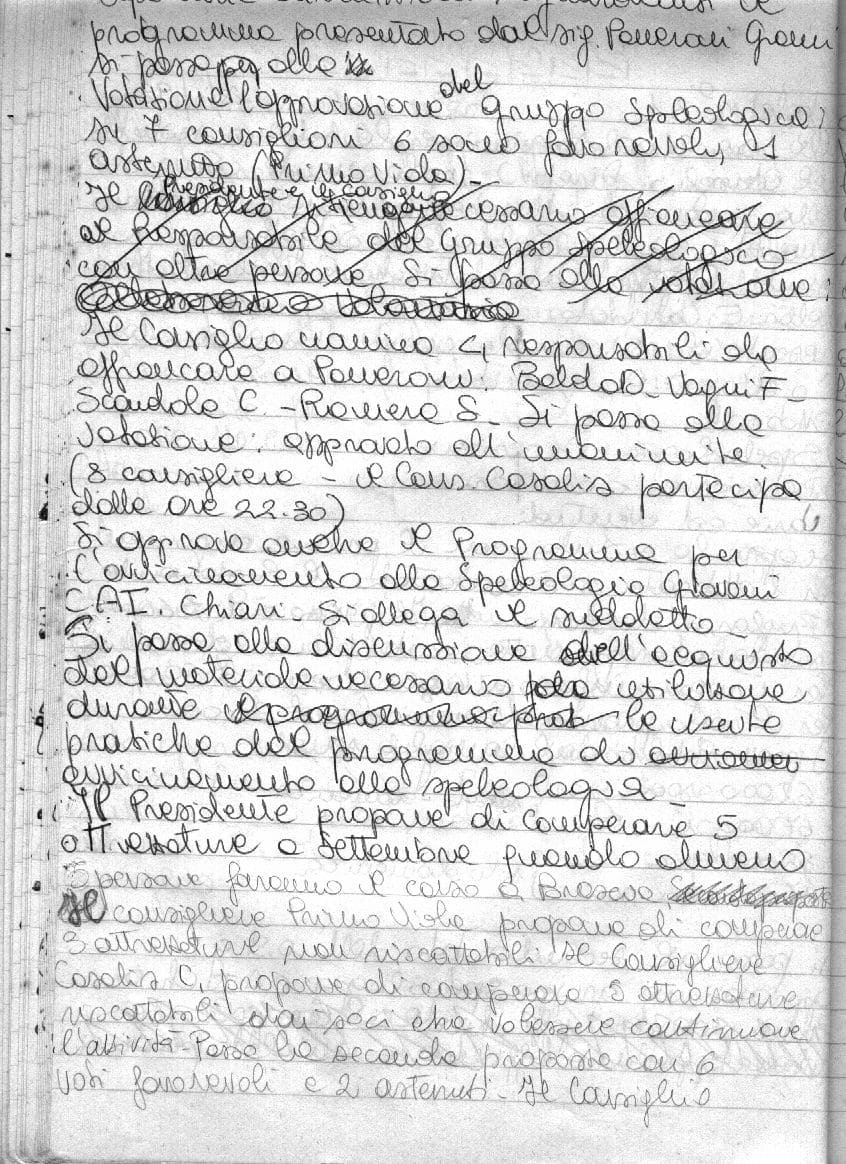 programma presentato dal sig. Pomerani Gianni
si passa per alla
Votazione l'approvazione del Gruppo Speleologico:
su 7 consiglieri 6 sono favorevoli, 1
astenuto (Primo Viola) -
Il Presidente e il Consiglio necessario affiancare
al Responsabile del Gruppo Speleologico
con altre persone. Si passa alla votazione:
Il Consiglio nomina 4 responsabili da
affiancare a Pomerani: Baldo D - Vagni F -
Scandola C. - Ramera S - Si passa alla
votazione: approvato all'unanimità.
(8 consigliere - il Cons. Casalis partecipa
dalle ore 22.30)
Si approva anche il Programma per
l'avvicinamento alla Speleologia Giovani
CAI. Chiari. Si allega il suddetto -
Si passa alla discussione dell'acquisto
del materiale necessario utilizzare
durante il programma le uscite
pratiche del programma di
avvicinamento alla speleologia
Il Presidente propone di comperare 5
attrezzature a Settembre quando almeno
5 persone faranno il corso a Brescia
Il consigliere Primo Viola propone di comperare
3 attrezzature non riscattabili Il Consigliere
Casalis C, propone di comperare 5 attrezzature
riscattabili dai soci che volessero continuare
l'attività - Passa la seconda proposta con 6
voti favorevoli e 2 astenuti - Il Consiglio